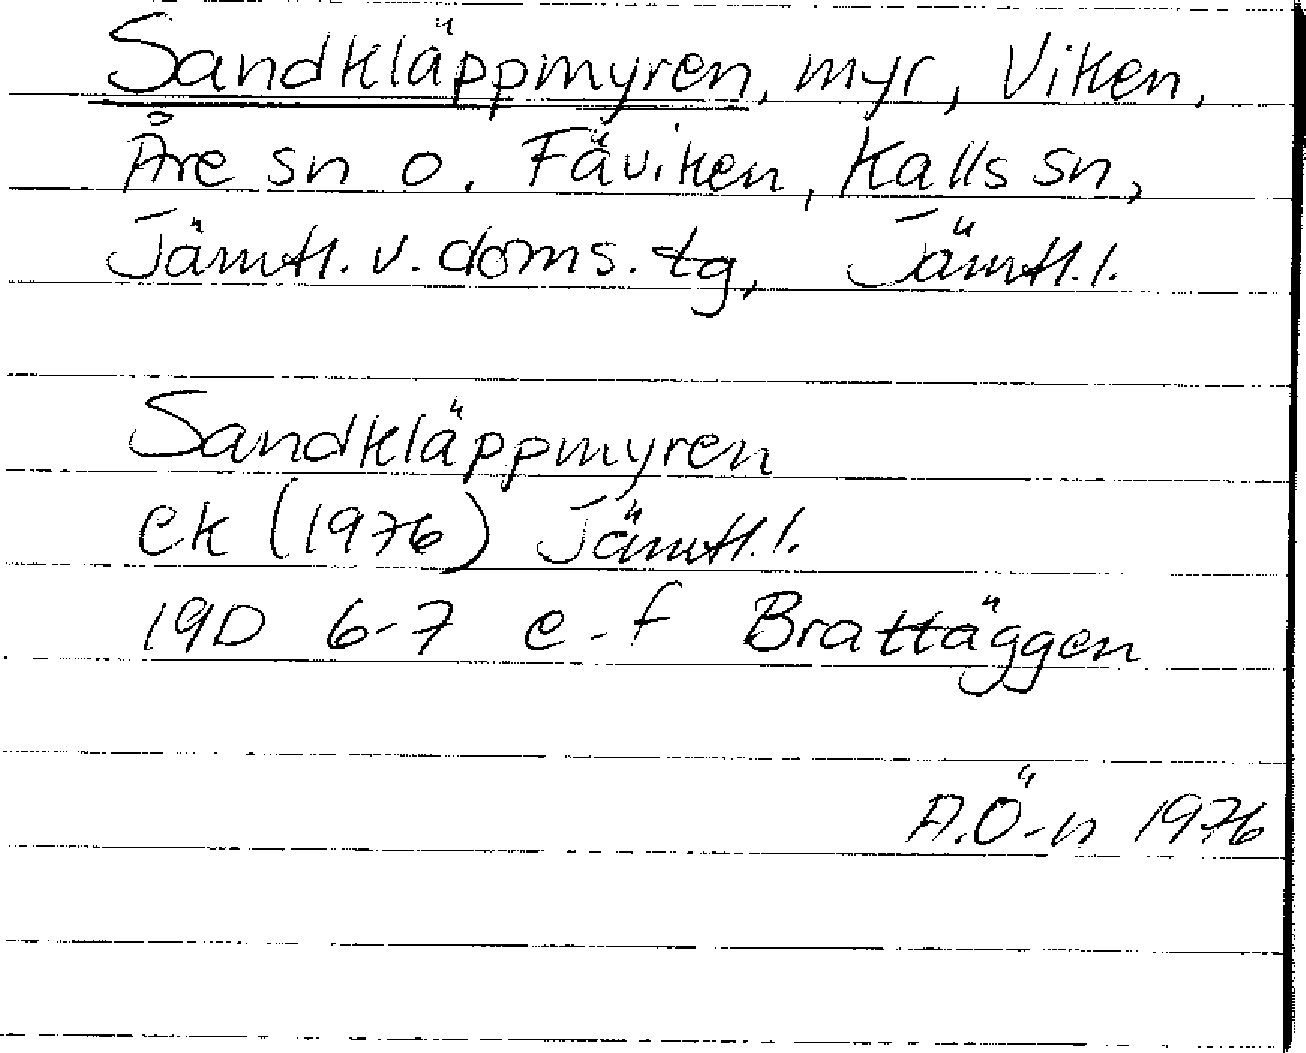 Sandkläppmyren, myr, Viken,
Åre sn o. Fäviken, Kalls sn,
Jämtl. v. doms. tg, Jämtl. l.
Sandkläppmyren
ek (1976) Jämtl. l.
19D 6-7 e-f Brattäggen
A.Ö-n 1976